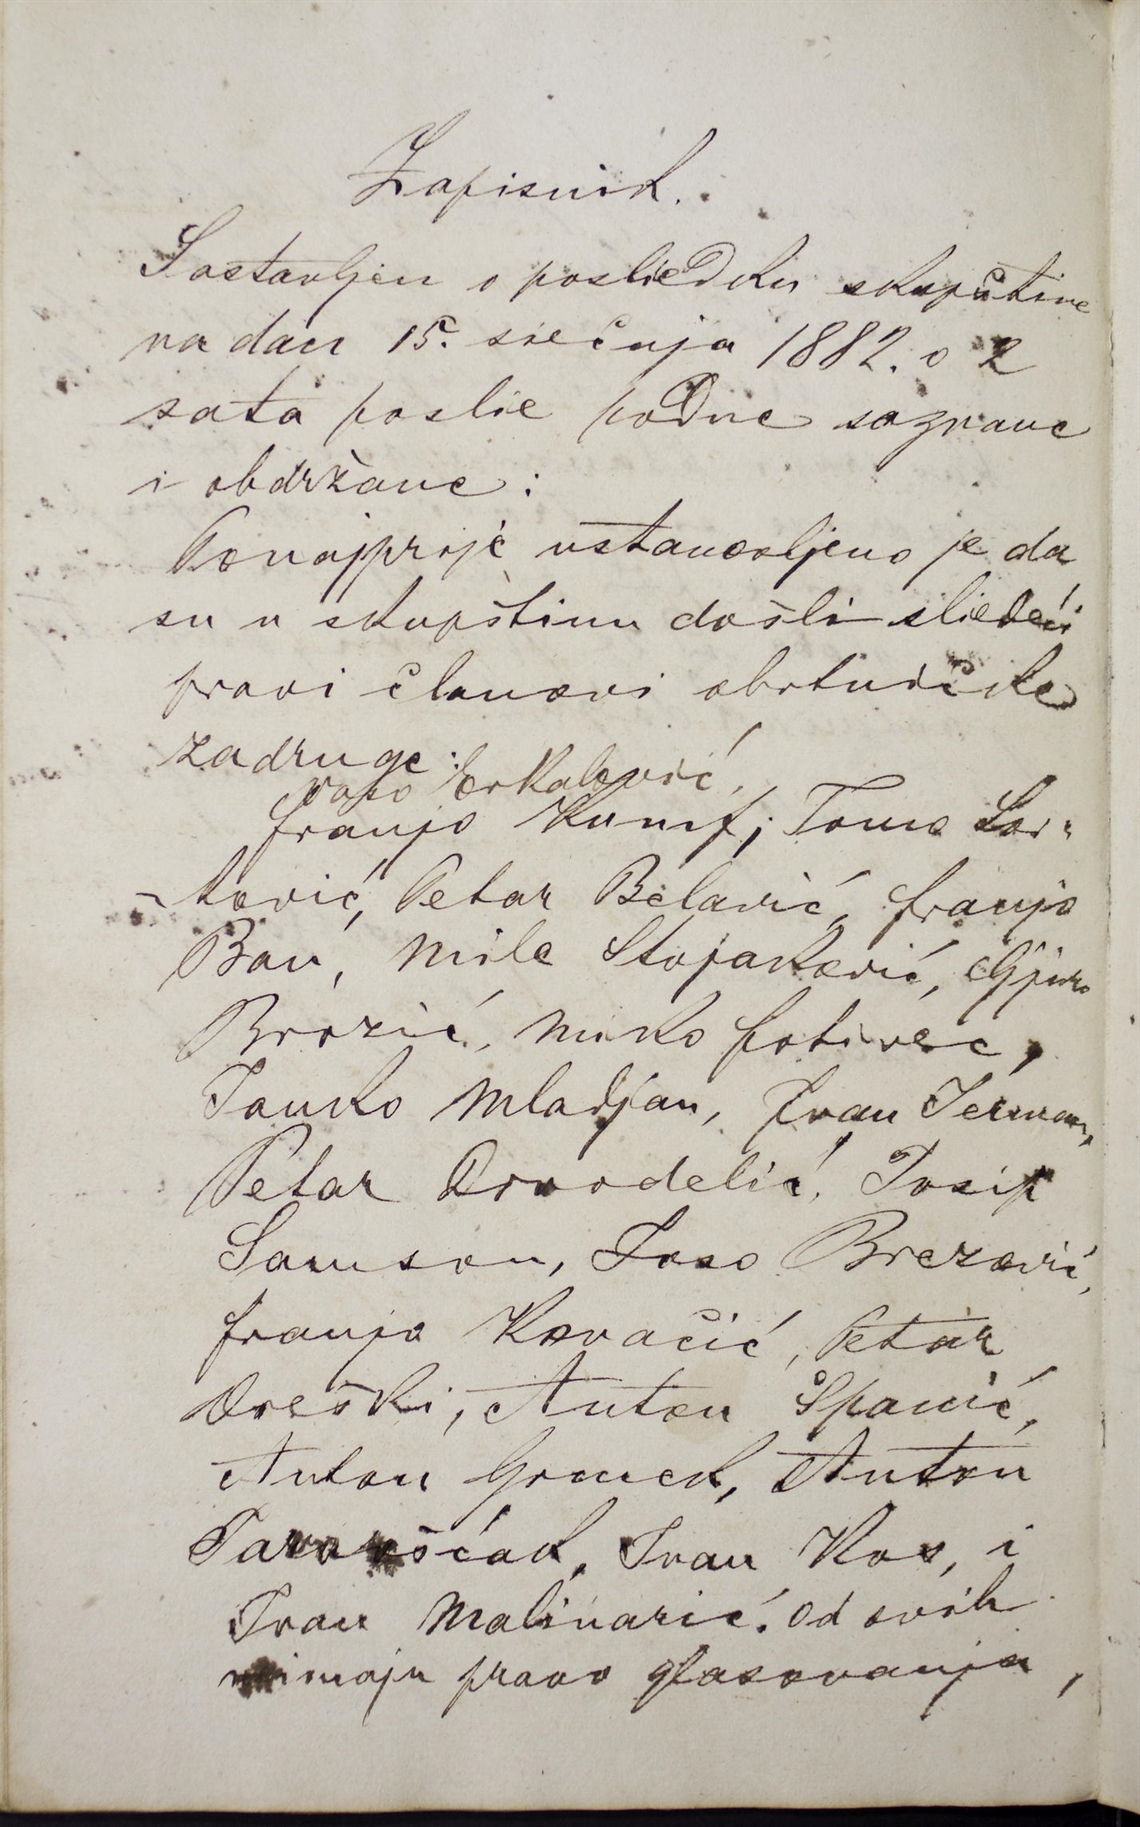 Zapisnik.
Sastavljen o posliedku skupštine
na dan 15. siečnja 1882. o 2
sata poslie podne sazvane
i obdržane:
Ponajprije ustanovljeno je da
su u skupštinu došli sliedeći
pravi članovi obrtničke
zadruge:
Franjo Kumf, Tomo
Petar Belavić, Franjo
Ban, Mile Stojaković, Gjuro
Brozić, Miko Fotivec,
Janko Mladjan, Ivan Jerman,
Petar Drvodelić, Josip
Samson, Joso Brezović,
Franjo Kovačić, Petar
Dreški, Anton Španić,
Anton Grmek, Anton
Ivan Kos, i
Ivan Malinarić. Od svih
imaju pravo glasovanja,